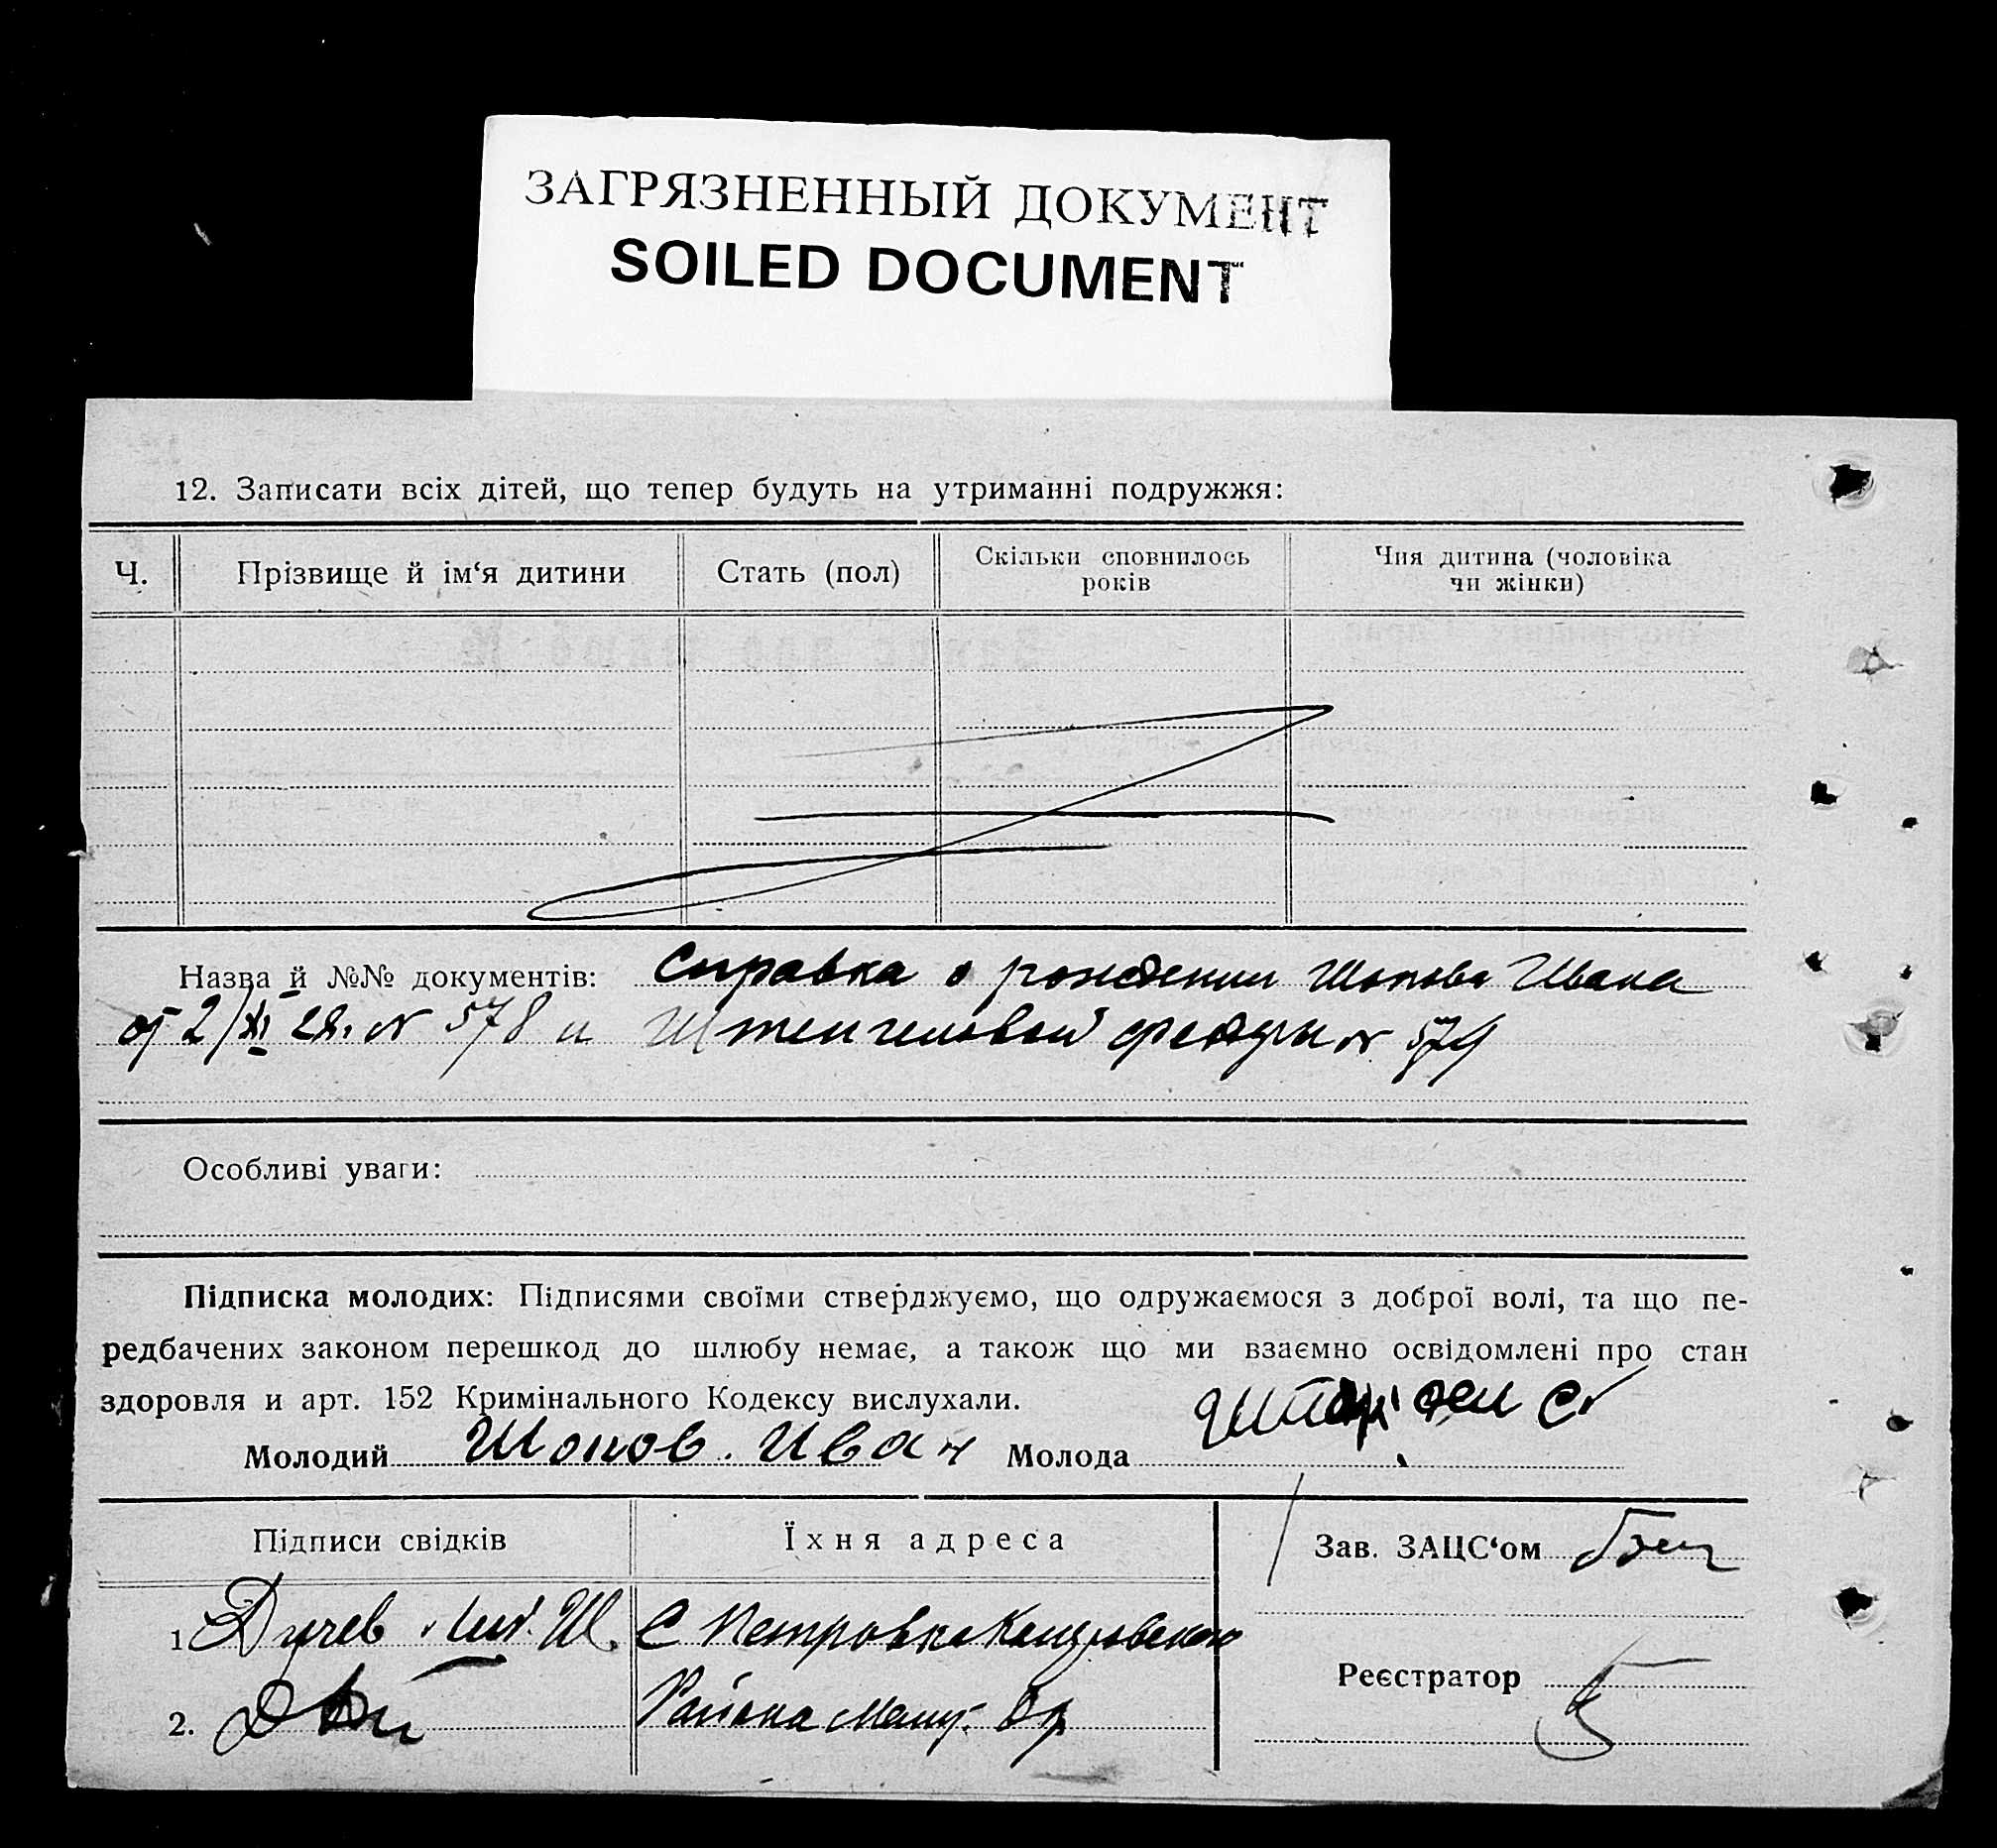 ЗАГРЯЗНЕННЫЙ ДОКУМЕНТ
SOILED DOCUMENT
12. Записати всіх дітей, що тепер будуть на утриманні подружжя:
Ч. Прізвище й ім‘я дитини Стать (пол) Скільки сповнилось років Чия дитина (чоловіка чи жінки)
Назва й №№ документів: Справка о рождении Шопова Ивана
от 2/XI 28. N 578 и Штенгеловой N 579
Особливі уваги:
Підписка молодих: Підписями своїми стверджуємо, що одружаємося з доброї волі, та що пе-
редбачених законом перешкод до шлюбу немає, а також що ми взаємно освідомлені про стан
здоровля и арт. 152 Кримінального Кодексу вислухали.
Молодий Шопов. Иван Молода
Підписи свідків Їхня адреса Зав. ЗАЦС‘ом
1 С Петровка
2. Района
Реєстратор